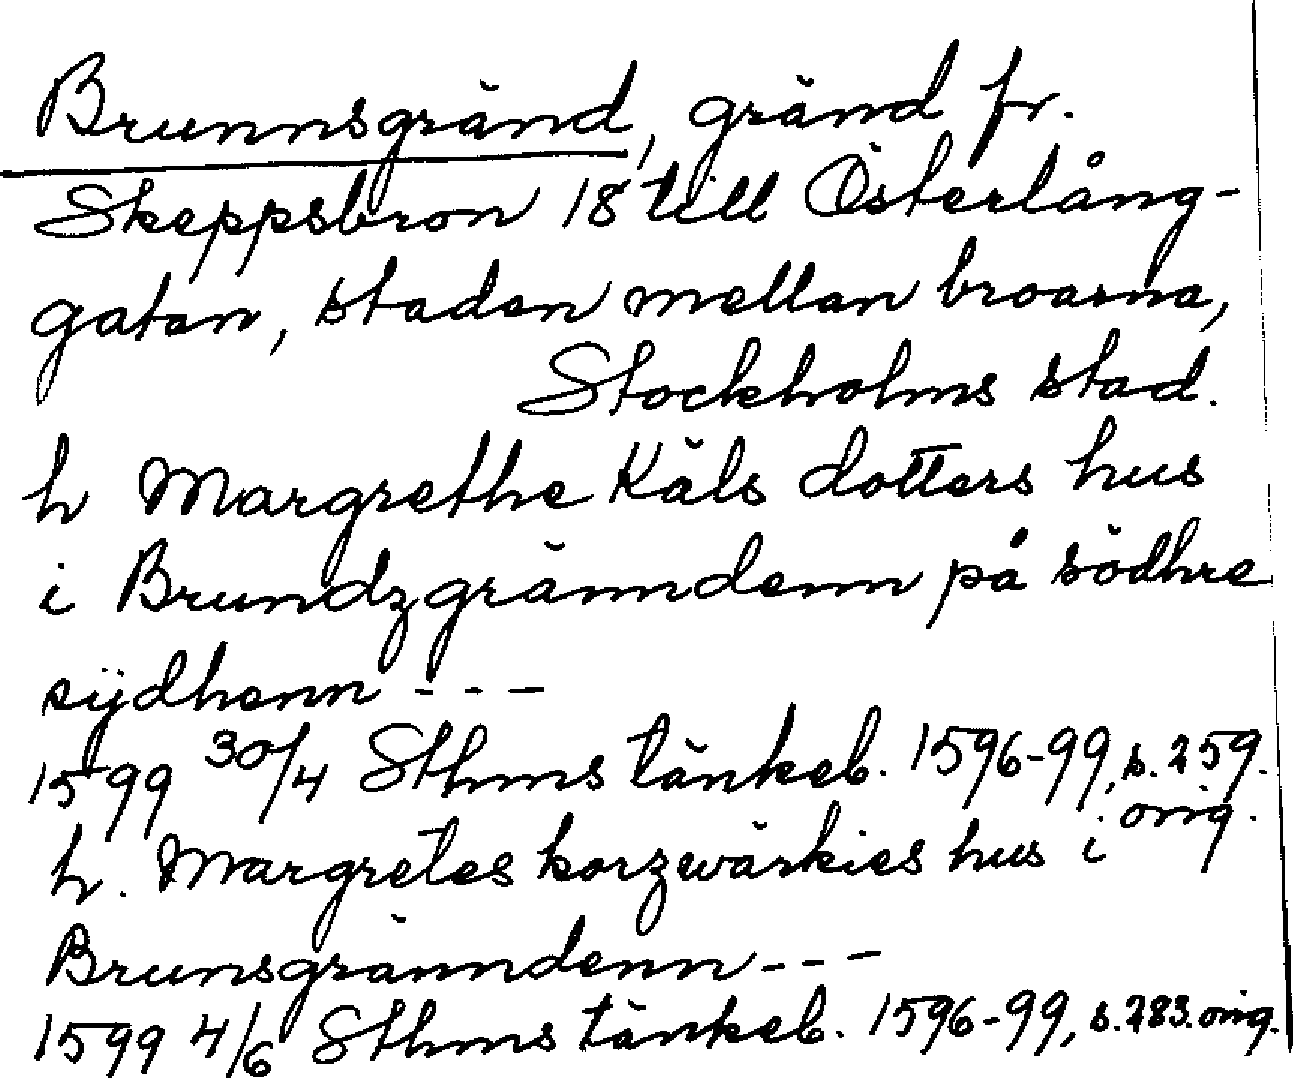 Brunnsgränd, gränd fr.
Skeppsbron 18 till Österlång-
gatan, staden mellan broarna,
Stockholms stad.
h Margrethe Kåls dotters hus
i Brundzgränndenn på södhre
sÿdhenn - - -
1599 30/4 Sthms tänkeb. 1596-99, s. 259.
orig.
h. Margretes korzwärkies hus i
Brunsgränndenn - - -
1599 4/6 Sthms tänkeb. 1596-99, s. 283. orig.